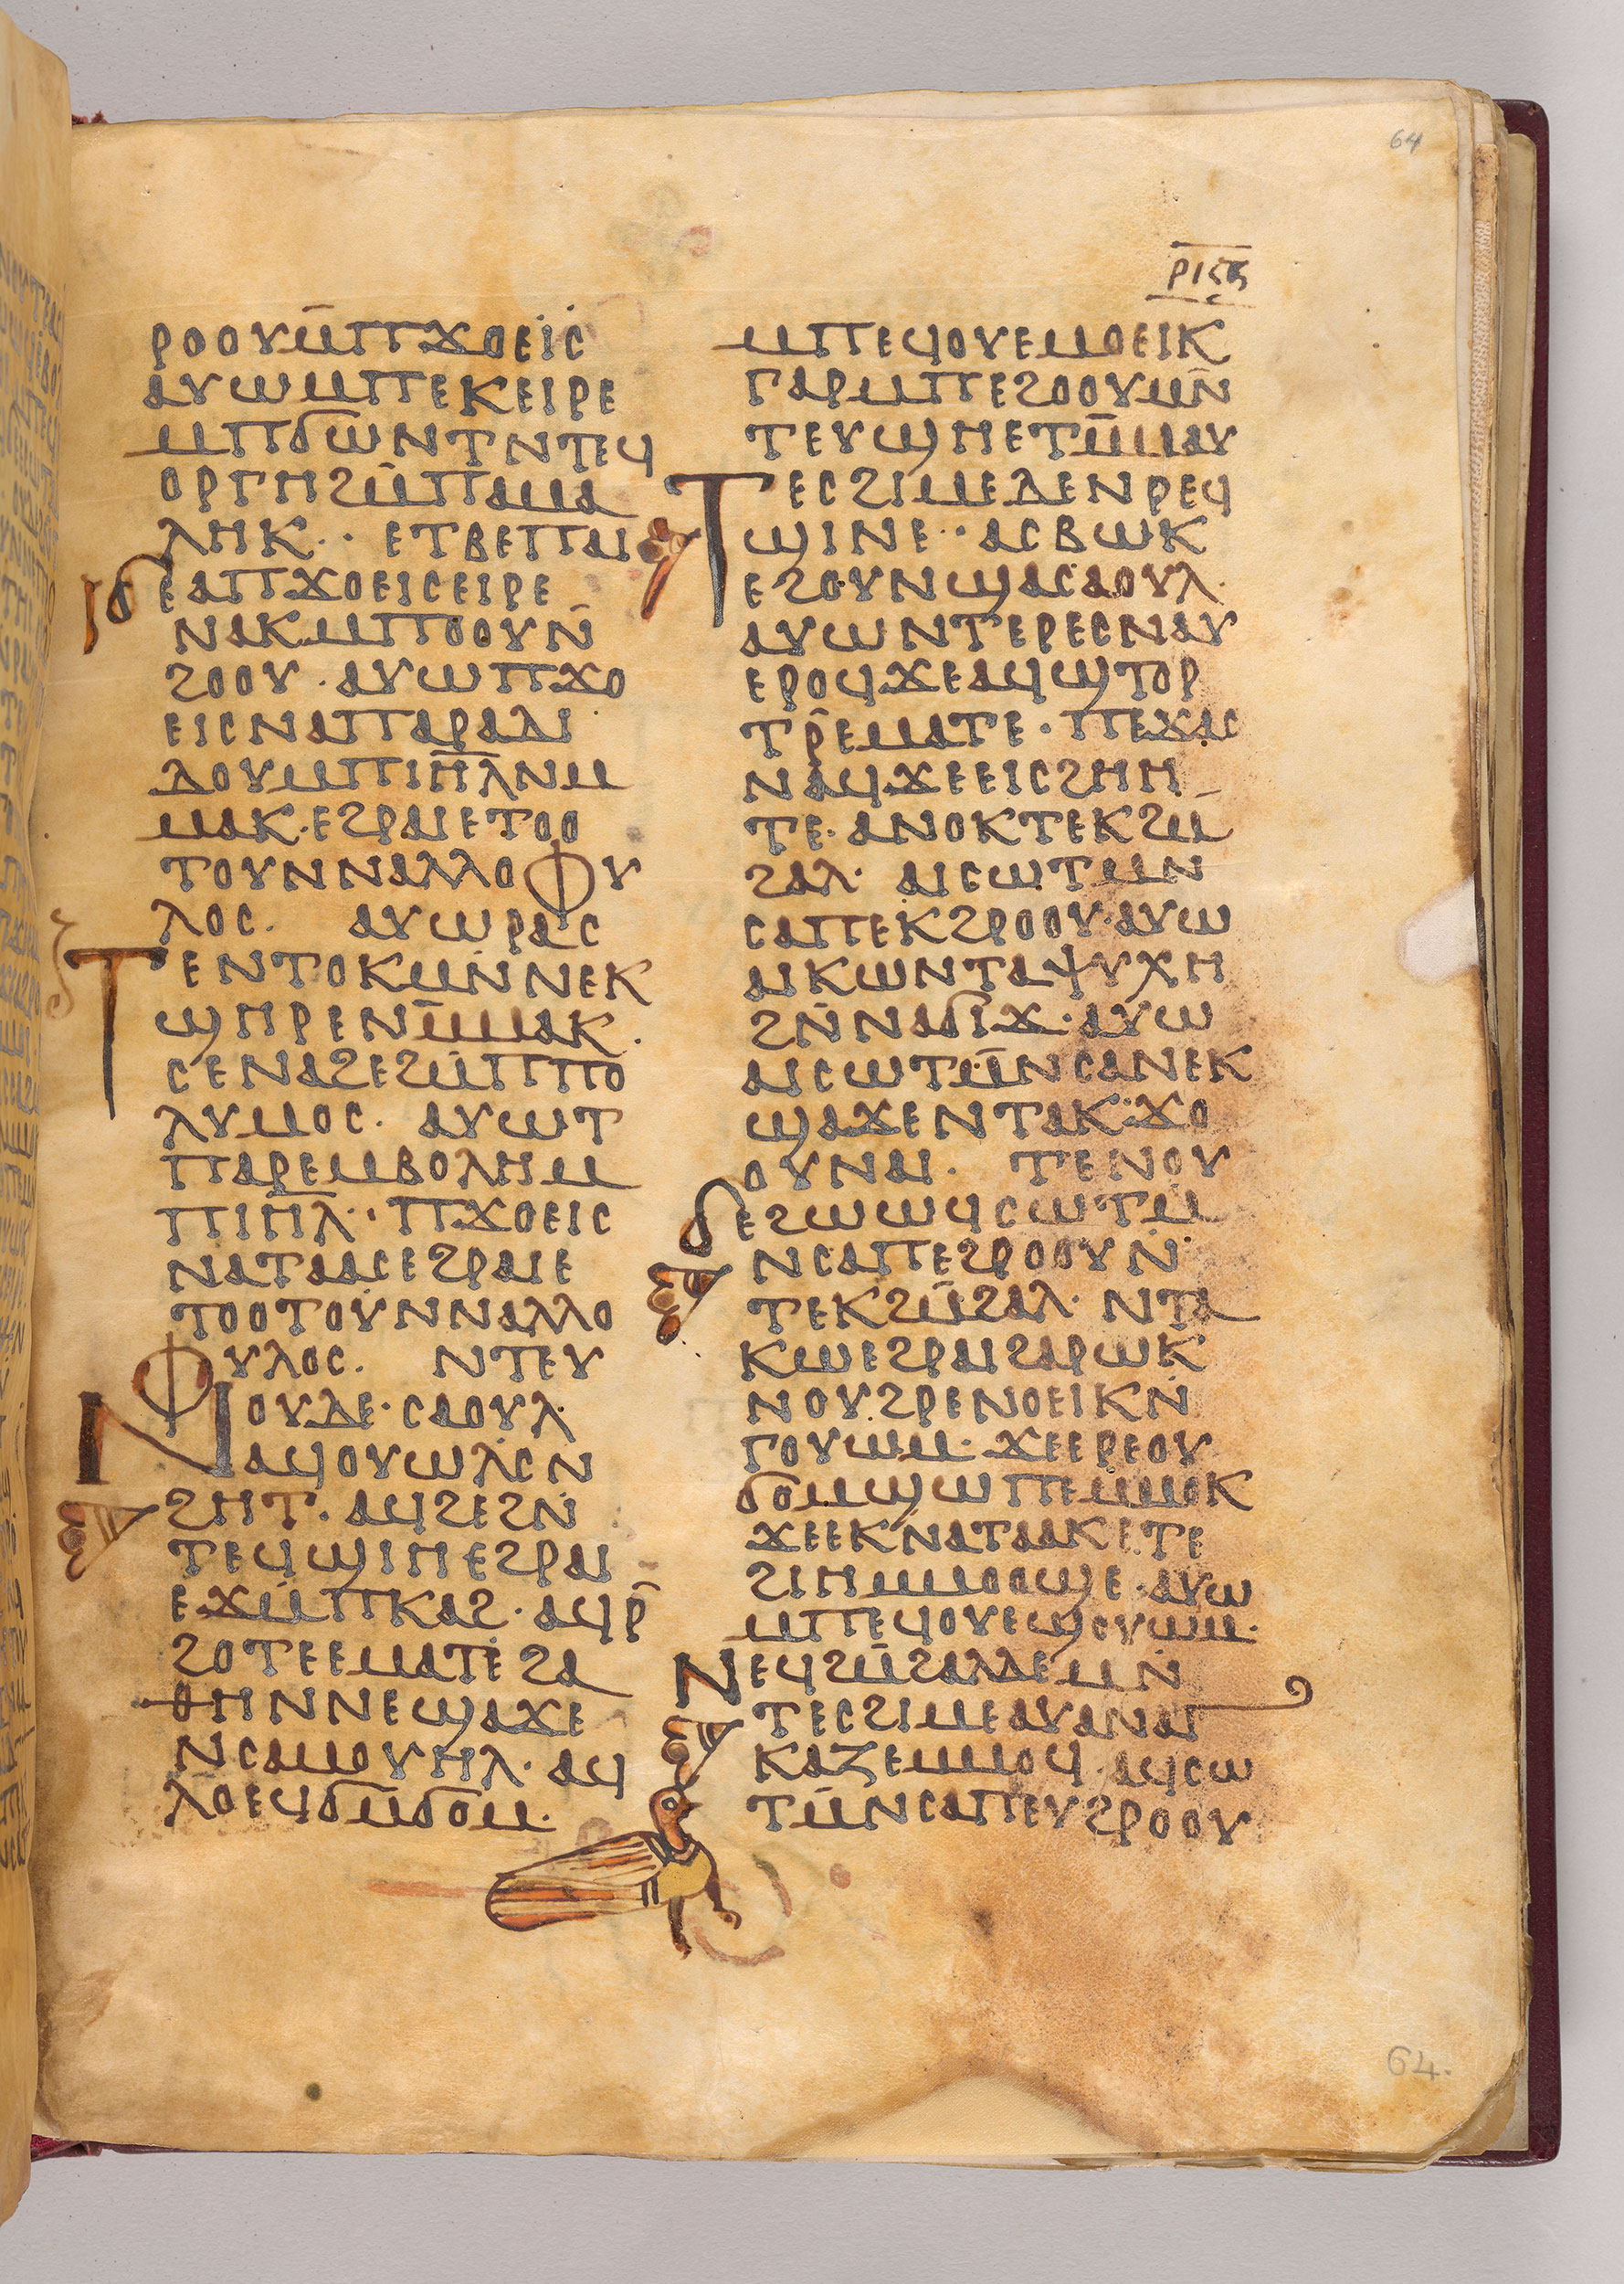 64
ⲣⲓⲍ
ⲣⲟⲟⲩⲙ̄ⲡϫⲟⲉⲓⲥ
ⲁⲩⲱⲙⲡⲉⲕⲉⲓⲣⲉ
ⲙⲡϭⲱⲛⲧⲛⲧⲉϥ
ⲟⲣⲅⲏϩⲙ̄ⲡⲁⲙⲁ
ⲗⲏⲕ·· ⲉⲧⲃⲉⲡⲁⲓ
ϭⲉⲁⲡϫⲟⲉⲓⲥⲉⲓⲣⲉ
ⲛⲁⲕⲙⲡⲟⲟⲩⲛ̄
ϩⲟⲟⲩ· ⲁⲩⲱⲡϫⲟ
ⲉⲓⲥⲛⲁⲡⲁⲣⲁⲇⲓ
ⲇⲟⲩⲙⲡⲓⲏ̄ⲗⲛⲙ
ⲙⲁⲕ·ⲉϩⲣⲁⲓⲉⲧⲟⲟ
ⲧⲟⲩⲛⲛⲁⲗⲗⲟⲫⲩ
ⲗⲟⲥ· ⲁⲩⲱⲣⲁⲥ
ⲧⲉⲛⲧⲟⲕⲙⲛ̄ⲛⲉⲕ
ϣⲏⲣⲉⲛⲙ̄ⲙⲁⲕ·
ⲥⲉⲛⲁϩⲉϩⲙ̄ⲡⲡⲟ
ⲗⲩⲙⲟⲥ· ⲁⲩⲱⲧ
ⲡⲁⲣⲉⲙⲃⲟⲗⲏⲙ
ⲡⲓⲏ̄ⲗ·· ⲡϫⲟⲉⲓⲥ
ⲛⲁⲧⲁⲁⲥⲉϩⲣⲁⲓⲉ
ⲧⲟⲟⲧⲟⲩⲛⲛⲁⲗⲗⲟ
ⲫⲩⲗⲟⲥ· ⲛⲧⲉⲩ
ⲛⲟⲩⲇⲉ·ⲥⲁⲟⲩⲗ
ⲁϥⲟⲩⲱⲗⲥⲛ
ϩⲏⲧ· ⲁϥϩⲉϩⲛ̄
ⲧⲉϥϣⲓⲏⲉϩⲣⲁⲓ
ⲉϫⲙ̄ⲡⲕⲁϩ· ⲁϥⲣ̄
ϩⲟⲧⲉⲉⲙⲁⲧⲉϩⲁ
ⲑⲏⲛⲛⲉϣⲁϫⲉ
ⲛⲥⲁⲙⲟⲩⲏⲗ· ⲁϥ
ⲗⲟⲉϥϭⲙ̄ϭⲟⲙ·
ⲙⲡⲉϥⲟⲩⲉⲙⲟⲉⲓⲕ
ⲅⲁⲣⲙⲡⲉϩⲟⲟⲩⲙⲛ̄
ⲧⲉⲩϣⲏⲉⲧⲙ̄ⲙⲁⲩ
ⲧⲉⲥϩⲓⲙⲉⲇⲉⲛⲣⲉϥ
ϣⲓⲛⲉ·· ⲁⲥⲃⲱⲕ
ⲉϩⲟⲩⲛϣⲁⲥⲁⲟⲩⲗ·
ⲁⲩⲱⲛⲧⲉⲣⲉⲥⲛⲁⲩ
ⲉⲣⲟϥϫⲉⲁϥϣⲧⲟⲣ
ⲧⲣ̄ⲉⲙⲁⲧⲉ· ⲡⲉϫⲁⲥ
ⲛⲁϥϫⲉⲉⲓⲥϩⲏⲏ
ⲧⲉ·ⲁⲛⲟⲕⲧⲉⲕϩⲙ̄
ϩⲁⲗ· ⲁⲓⲥⲱⲧⲙⲛ
ⲥⲁⲡⲉⲕϩⲣⲟⲟⲩ·ⲁⲩⲱ
ⲁⲓⲕⲱⲛⲧⲁⲯⲩⲭⲏ
ϩⲛ̄ⲛⲁϭⲓϫ·ⲁⲩⲱ
ⲁⲓⲥⲱⲧⲙ̄ⲛⲥⲁⲛⲉⲕ
ϣⲁϫⲉⲛⲧⲁⲕϫⲟ
ⲟⲩⲛⲁⲓ· ⲧⲉⲛⲟⲩ
ϭⲉϩⲱⲱϥⲥⲱⲧⲙ̄
ⲛⲥⲁⲡⲉϩⲣⲟⲟⲩⲛ
ⲧⲉⲕϩⲙ̄ϩⲁⲗ· ⲛⲧⲁ
ⲕⲱⲉϩⲣⲁⲓϩⲁⲣⲱⲕ
ⲛⲟⲩϩⲣⲉⲛⲟⲉⲓⲕⲛ̄
ⲅⲟⲩⲱⲙ· ϫⲉⲉⲣⲉⲟⲩ
ϭⲟⲙϣⲱⲡⲉⲙⲙⲟⲕ
ϫⲉⲉⲕⲛⲁⲧⲁⲁⲕⲉⲧⲉ
ϩⲓⲏⲙⲙⲟⲟϣⲉ·ⲁⲩⲱ
ⲙⲡⲉϥⲟⲩⲉϣⲟⲩⲱⲙ·
ⲛⲉϥϩⲙ̄ϩⲁⲗⲇⲉⲙⲛ̄
ⲧⲉⲥϩⲓⲙⲉⲁⲩⲁⲛⲁⲅ
ⲕⲁⲍⲉⲙⲙⲟϥ·ⲁϥⲥⲱ
ⲧⲙ̄ⲛⲥⲁⲡⲉⲩϩⲣⲟⲟⲩ
64.